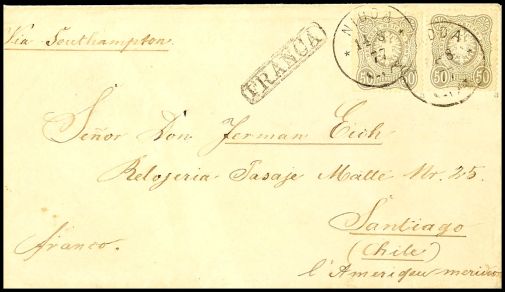 Via Southampton.
FRANCA
NIDDA
14 8
77
50
50
Señor Don German Eich
Relojeria Pasaje Matte Nr. 25.
Santiago
(Chile)
franco.
l'Amerique